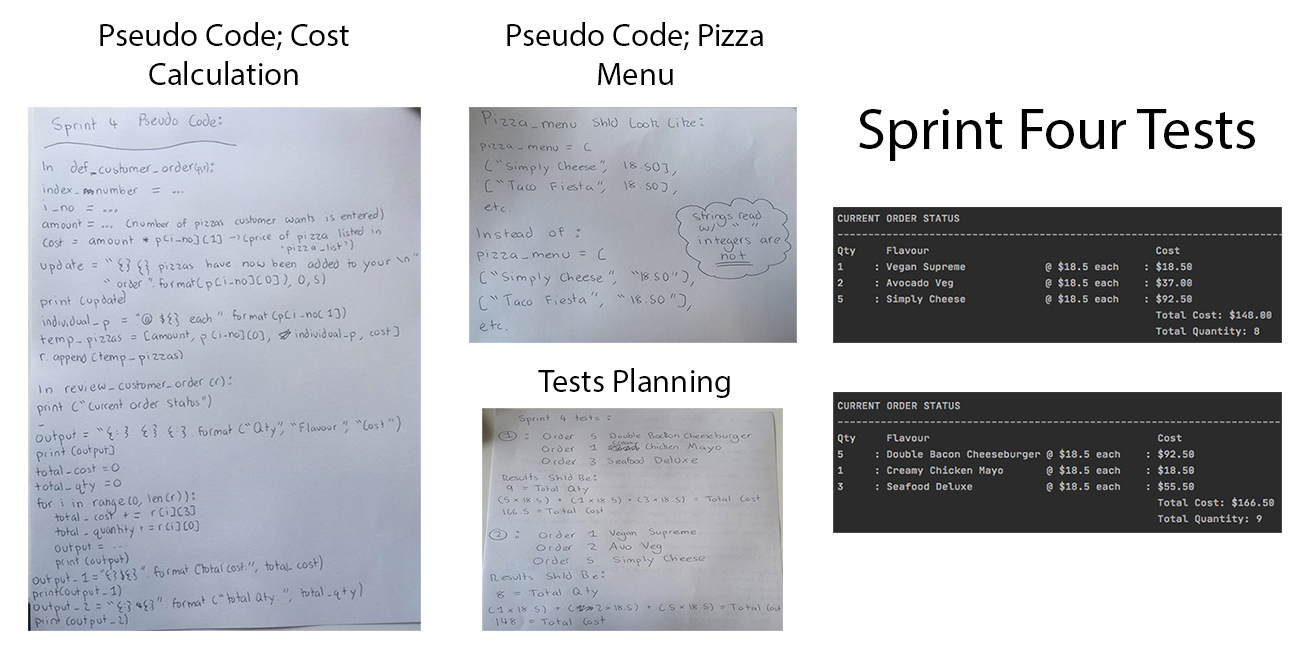 Pseudo Code; Cost
Calculation
Sprint 4 Pseudo Code:
In def_customer_order(p,r):
index_number = ...
i_no = ...
amount = ... (number of pizzas customer wants is entered)
cost = amount * p[i-no][1] -> (price of pizza listed in
'pizza_list')
update = "{} {} pizzas have now been added to your \n"
"order".format(p[i-no][0]), 0, s)
print (update)
individual_p = "@ ${} each". format (p[i-no[1])
temp_pizzas = [amount, p[i-no][0], individual_p, cost]
r. append (temp_pizzas)
In review_customer_order (r):
print ("Current order status")
output = "{:} {} {:} format ("Qty", "Flavour", "Cost")
print (output)
total_cost = 0
total_qty = 0
for i in range(0, len(r)):
total_cost += r[i][3]
total_quantity += r[i][0]
output = ...
print (output)
output_1 = "{}${}". format (total cost:", total_cost)
print(output_1)
output_2 = "{:} {}" format ("total Qty:", total_qty)
print (output_2)
Pseudo Code; Pizza
Menu
Pizza_menu Shld Look Like:
pizza_menu = [
["Simply Cheese", 18.50],
["Taco Fiesta", 18.50],
etc.
Strings read
w/ " "
integers are
not
Instead of :
pizza_menu = [
["Simply Cheese", "18.50"],
["Taco Fiesta", "18.50"],
etc.
Tests Planning
Sprint 4 tests :
1 : Order 5 Double Bacon Cheeseburger
Order 1 Creamy Chicken Mayo
Order 3 Seafood Deluxe
Results Shld Be:
9 = Total Qty
(5 x 18.5) + (1 x 18.5) + (3 x 18.5) = Total Cost
166.5 = Total Cost
2 : Order 1 Vegan Supreme
Order 2 Avo Veg
Order 5 Simply Cheese
Results Shld Be:
8 = Total Qty
(1 x 18.5) + (2 x 18.5) + (5 x 18.5) = Total Cost
148 = Total Cost
Sprint Four Tests
CURRENT ORDER STATUS
Qty Flavour Cost
1 : Vegan Supreme @ $18.5 each : $18.50
2 : Avocado Veg @ $18.5 each : $37.00
5 : Simply Cheese @ $18.5 each : $92.50
Total Cost: $148.00
Total Quantity: 8
CURRENT ORDER STATUS
Qty Flavour Cost
5 : Double Bacon Cheeseburger @ $18.5 each : $92.50
1 : Creamy Chicken Mayo @ $18.5 each : $18.50
3 : Seafood Deluxe @ $18.5 each : $55.50
Total Cost: $166.50
Total Quantity: 9